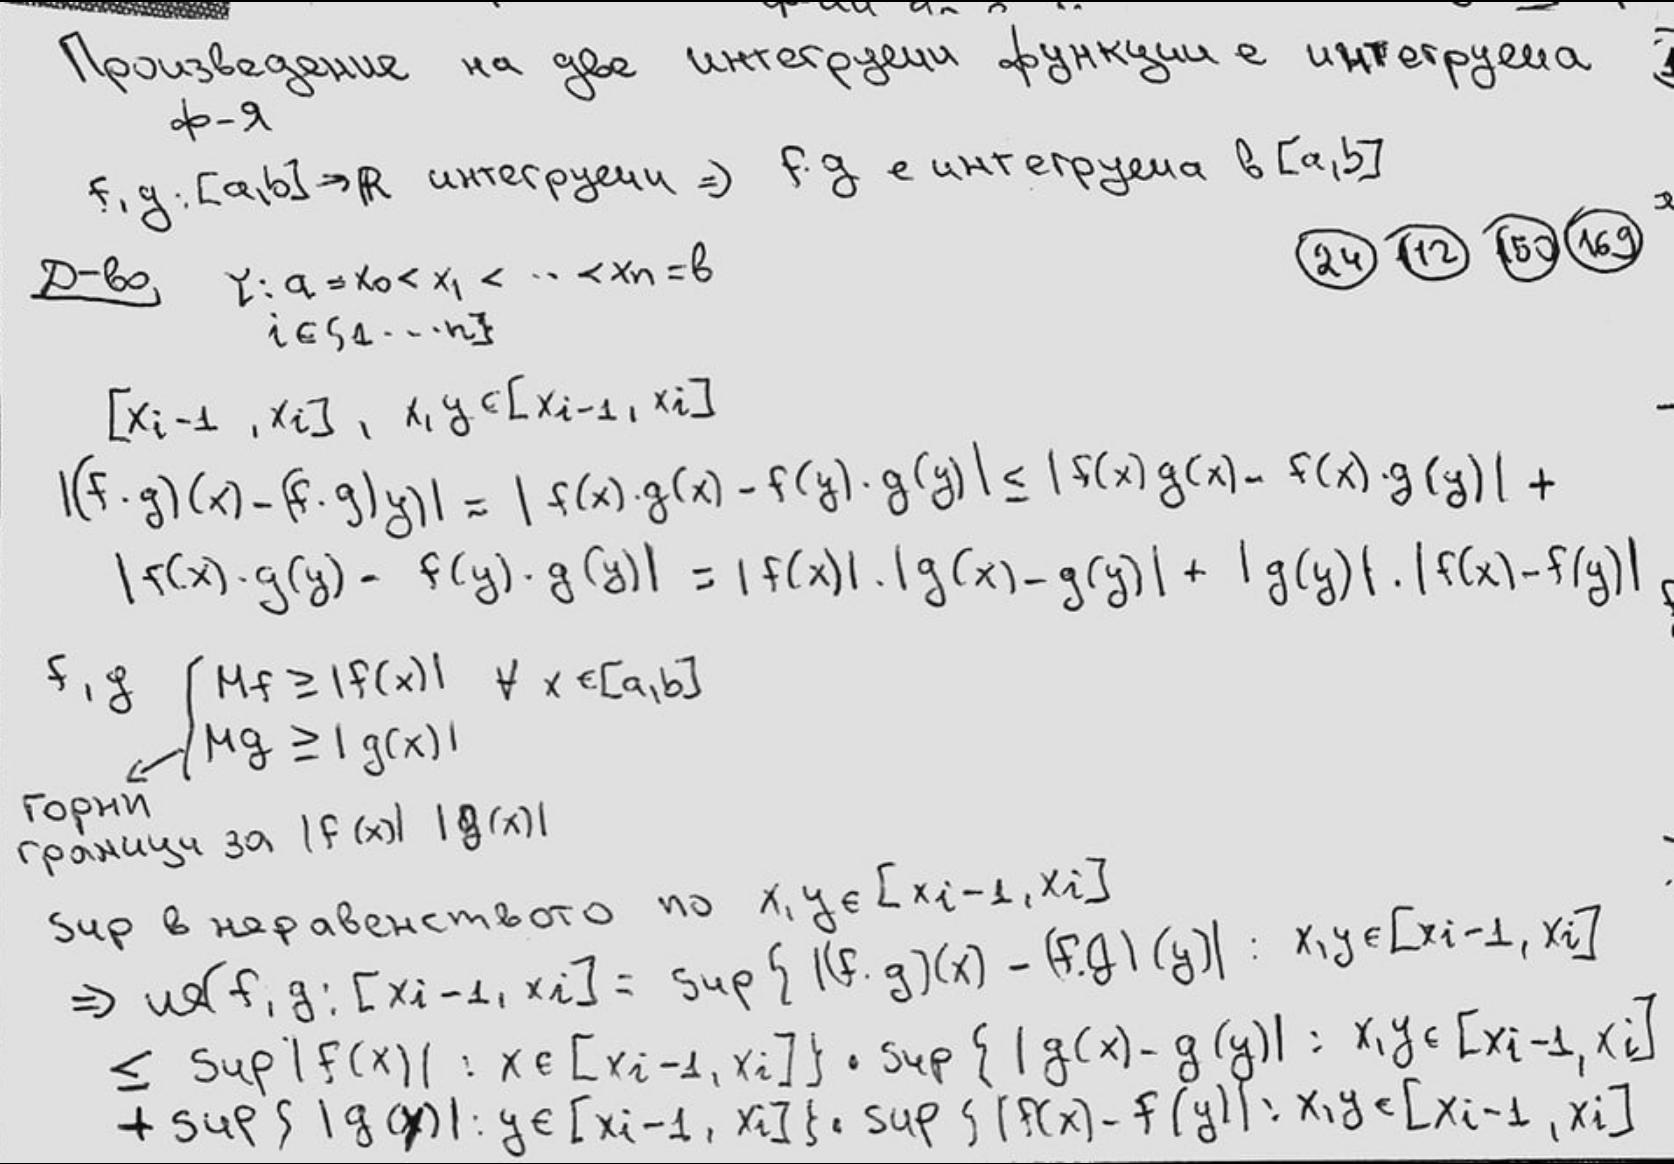 Произведение на две интегруеми функции е интегруема
ф-я
f, g: [a,b] → ℝ интегруеми ⇒ f.g е интегруема в [a,b]
24 112 150 169
Д-во, τ: a = x0 < x1 < .. < xn = b
i ∈ {1...n}
[xi-1, xi], x, y ∈ [xi-1, xi]
|(f.g)(x) - (f.g)y)| = |f(x).g(x) - f(y).g(y)| ≤ |f(x)g(x) - f(x).g(y)| +
|f(x).g(y) - f(y).g(y)| = |f(x)|.|g(x) - g(y)| + |g(y)|.|f(x) - f(y)|
f, g { Mf ≥ |f(x)| ∀ x ∈ [a,b]
Mg ≥ |g(x)|
горни
граници за |f(x)| |g(x)|
sup в неравенството по x, y ∈ [xi-1, xi]
⇒ f, g: [xi-1, xi] = sup{ |(f.g)(x) - (f.g)(y)| : x, y ∈ [xi-1, xi]
≤ sup |f(x)| : x ∈ [xi-1, xi]} . sup { |g(x) - g(y)| : x, y ∈ [xi-1, xi]
+ sup{ |g(y)| : y ∈ [xi-1, xi]} . sup { |f(x) - f(y)| : x, y ∈ [xi-1, xi]